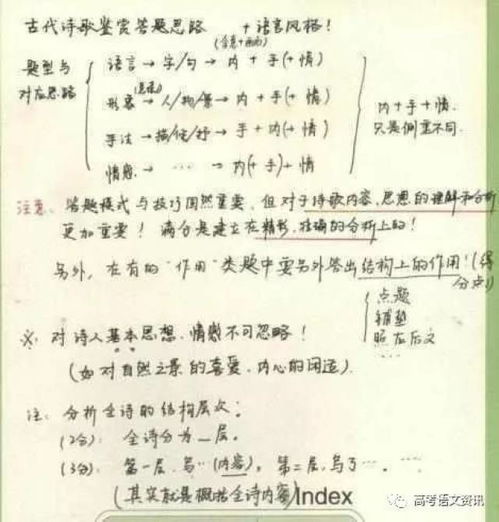 古代诗歌鉴赏答题思路 + 语言风格!
题型与
对应思路
语言 → 字/句 → 内 + 手(+ 情)
形象 → 人/物/景 → 内 + 手(+ 情)
手法 → 描/抒 → 手 + 内(+ 情)
情感 → …… → 内(+ 手) + 情
内 + 手 + 情.
只是侧重不同.
注意、答题模式与技巧固然重要,但对于诗歌内容、思想的理解和分析
更加重要! 满分是建立在精彩、准确的分析上的!
另外,在有的“作用”类题中要另外答出结构上的作用!(得分点!)
点题
铺垫
照应后文
※、对诗人基本思想、情感不可忽略!
(如对自然之景的喜爱、内心的闲适).
注:分析全诗的结构层次:
(2分): 全诗分为_层。
(3分): 第一层,写…(内容)。第二层,写了…. ….
(其实就是概括全诗内容)
Index
高考语文资讯